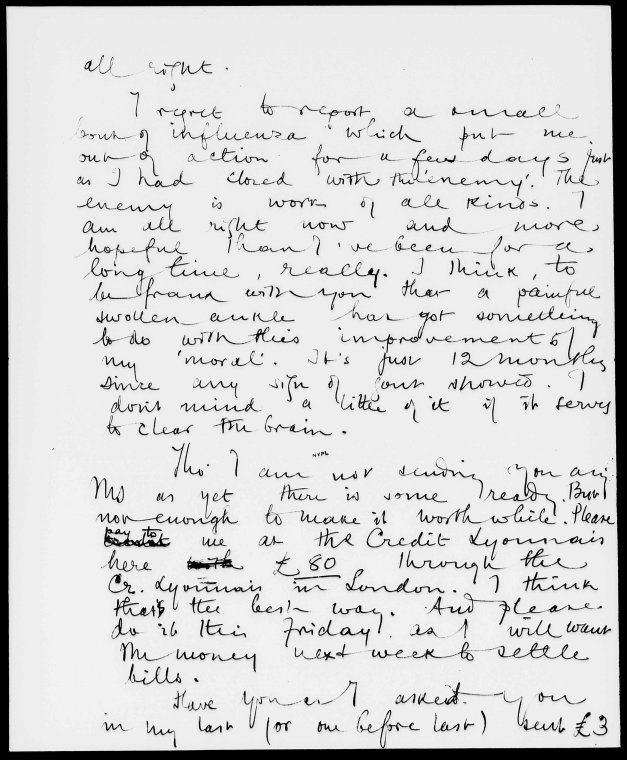 all right.
I regret to report a small
bout of influenza which put me
out of action for a few days just
as I had closed with the 'enemy'. The
enemy is work of all kinds. I
am all right now and more
hopeful than I've been for a
long time, really. I think, to
be frank with you that a painful
swollen ankle has got something
to do with this improvement of
my 'moral'. It's just 12 months
since any sign of gout showed. I
don't mind a little of it if it serves
to clear the brain.
Tho' I am not sending you any
NYPL
MS as yet there is some ready. But
not enough to make it worth while. Please
pay to
me at the Credit Lyonnais
here £80 through the
Cr. Lyonnais in London. I think
that's the best way. And please
do it this Friday! as I will want
the money next week to settle
bills.
Have you as I asked you
in my last (or one before last) sent £3